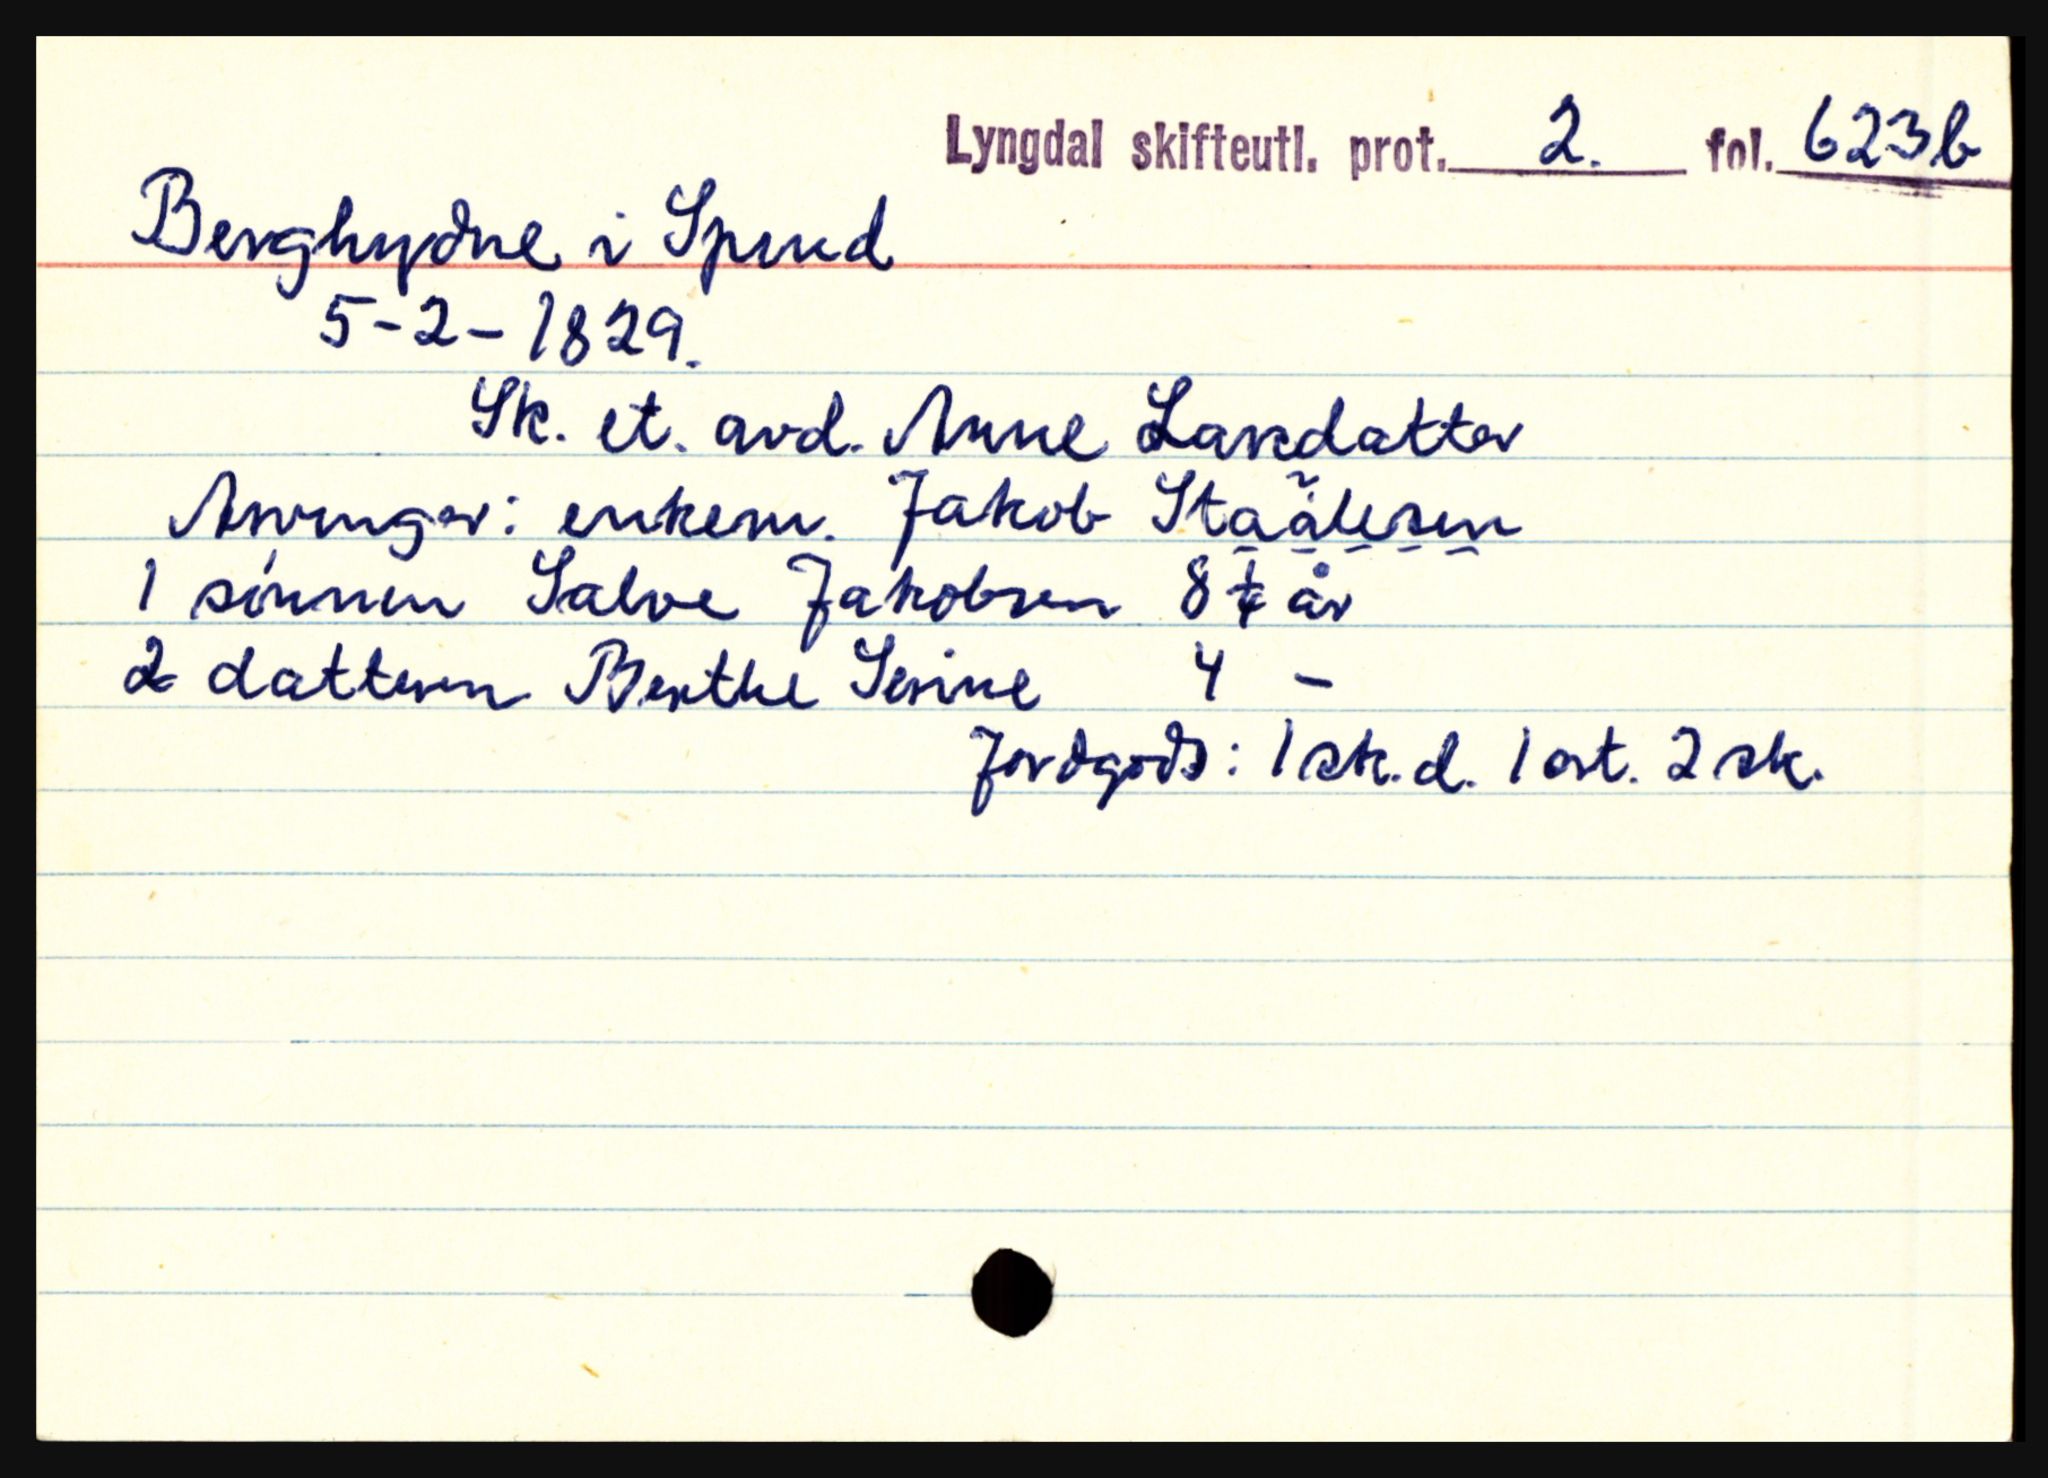 Lyngdal skifteutl. prot. 2. fol. 623b
Berghydne i Spind
5-2-1829.
Sk. et. avd. Anne Larsdatter
Arvinger: enkem. Jakob Staålesen
1 sønnen Salve Jakobsen 8 1/4 år
2 datteren Berthe Serine 4 -
Jordgods: 1 sk. d. 1 ort. 2 sk.